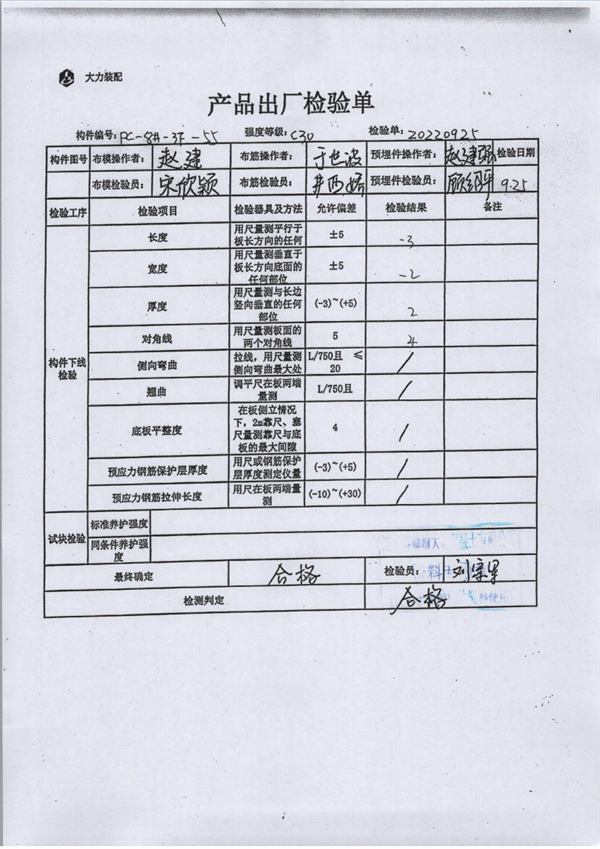 大力装配
产品出厂检验单
构件编号: PC-8#-3F-55 强度等级: C30 检验单: 20220925
构件图号 布模操作者: 赵建 布筋操作者: 于世波 预埋件操作者: 赵建 检验日期
布模检验员: 宋欣颖 布筋检验员: 井西 预埋件检验员: 9.25
检验工序 检验项目 检验器具及方法 允许偏差 检验结果 备注
构件下线检验
长度 用尺量测平行于板长方向的任何 ±5 -3
宽度 用尺量测垂直于板长方向底面的任何部位 ±5 -2
厚度 用尺量测与长边竖向垂直的任何部位 (-3)~(+5) 2
对角线 用尺量测板面的两个对角线 5 4
侧向弯曲 拉线,用尺量测侧向弯曲最大处 L/750且 ≤20 /
翘曲 调平尺在板两端量测 L/750且 /
底板平整度 在板侧立情况下,2m靠尺、塞尺量测靠尺与底板的最大间隙 4 /
预应力钢筋保护层厚度 用尺或钢筋保护层厚度测定仪量 (-3)~(+5) /
预应力钢筋拉伸长度 用尺在板两端量测 (-10)~(+30) /
试块检验 标准养护强度
同条件养护强度
最终确定 合格 检验员: 刘宗果
检测判定 合格